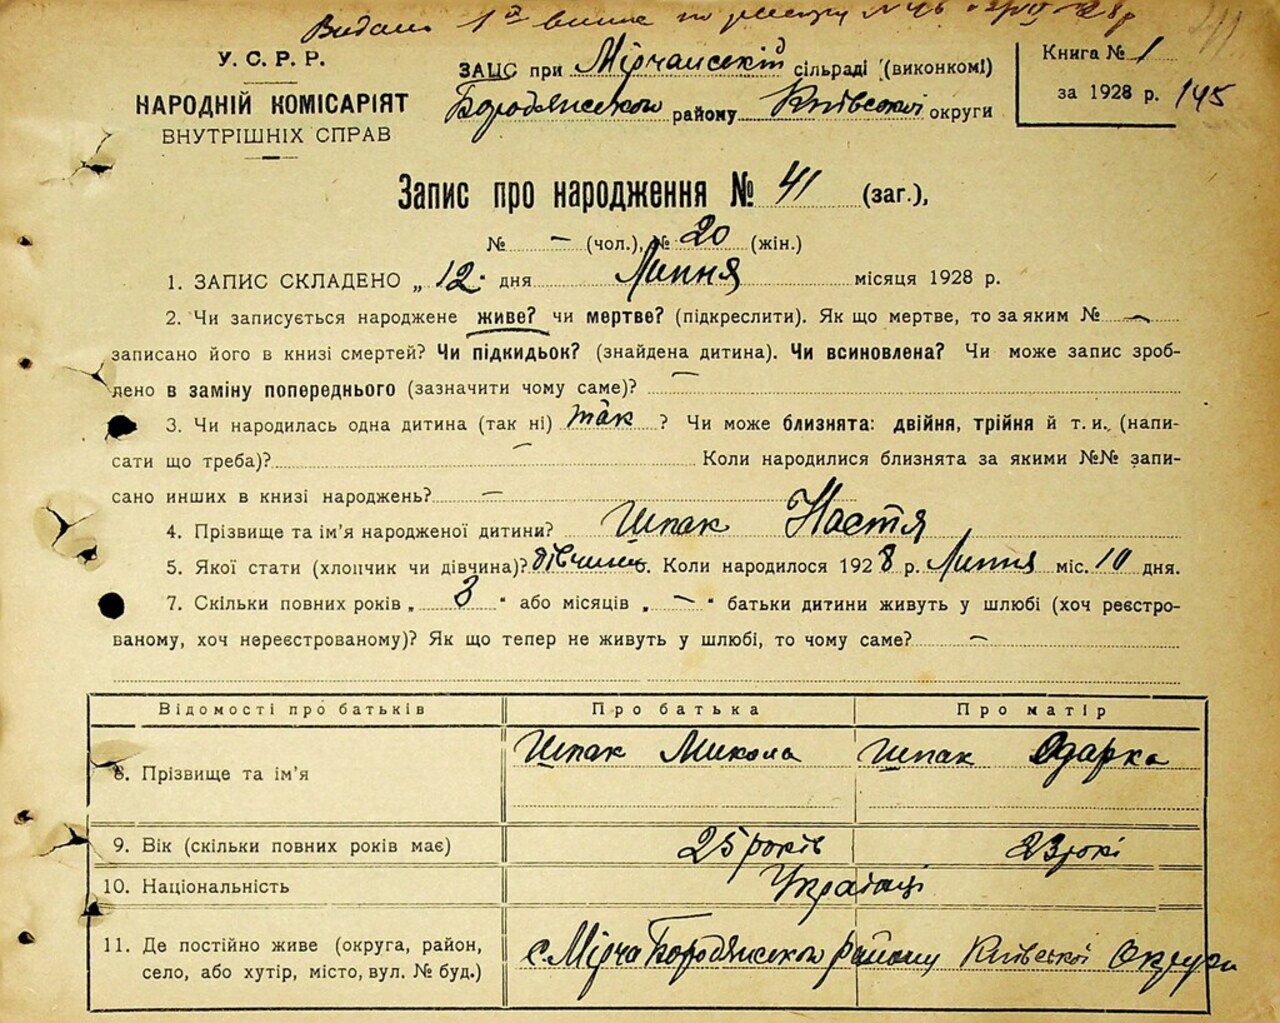 Видано 1й випис по реєстру N 46 28 р
У. С. Р. Р.
НАРОДНІЙ КОМІСАРІЯТ
ВНУТРІШНІХ СПРАВ
ЗАЦС при Мірчанській сільраді (виконкомі)
Бородянського району Київської округи
Книга № 1
за 1928 р. 145
Запис про народження № 41 (заг.),
№ — (чол.), № 20 (жін.)
1. ЗАПИС СКЛАДЕНО „ 12 " дня Липня місяця 1928 р.
2. Чи записується народжене живе? чи мертве? (підкреслити). Як що мертве, то за яким № —
записано його в книзі смертей? Чи підкидьок? (знайдена дитина). Чи всиновлена? Чи може запис зроб-
лено в заміну попереднього (зазначити чому саме)? —
3. Чи народилась одна дитина (так ні) так ? Чи може близнята: двійня, трійня й т. и., (напи-
сати що треба)? — Коли народилися близнята за якими №№ запи-
сано инших в книзі народжень? —
4. Прізвище та ім'я народженої дитини? Шпак Настя
5. Якої стати (хлопчик чи дівчина)? дівчина. Коли народилося 1928 р. Липня міс. 10 дня.
7. Скільки повних років „ 3 " або місяців „ — " батьки дитини живуть у шлюбі (хоч реєстро-
ваному, хоч нереєстрованому)? Як що тепер не живуть у шлюбі, то чому саме? —
Відомості про батьків Про батька Про матір
8. Прізвище та ім'я Шпак Микола Шпак Одарка
9. Вік (скільки повних років має) 25 років 23 рокі
10. Національність Українці
11. Де постійно живе (округа, район,
село, або хутір, місто, вул. № буд.) с. Мірча Бородянського району Київської Округи